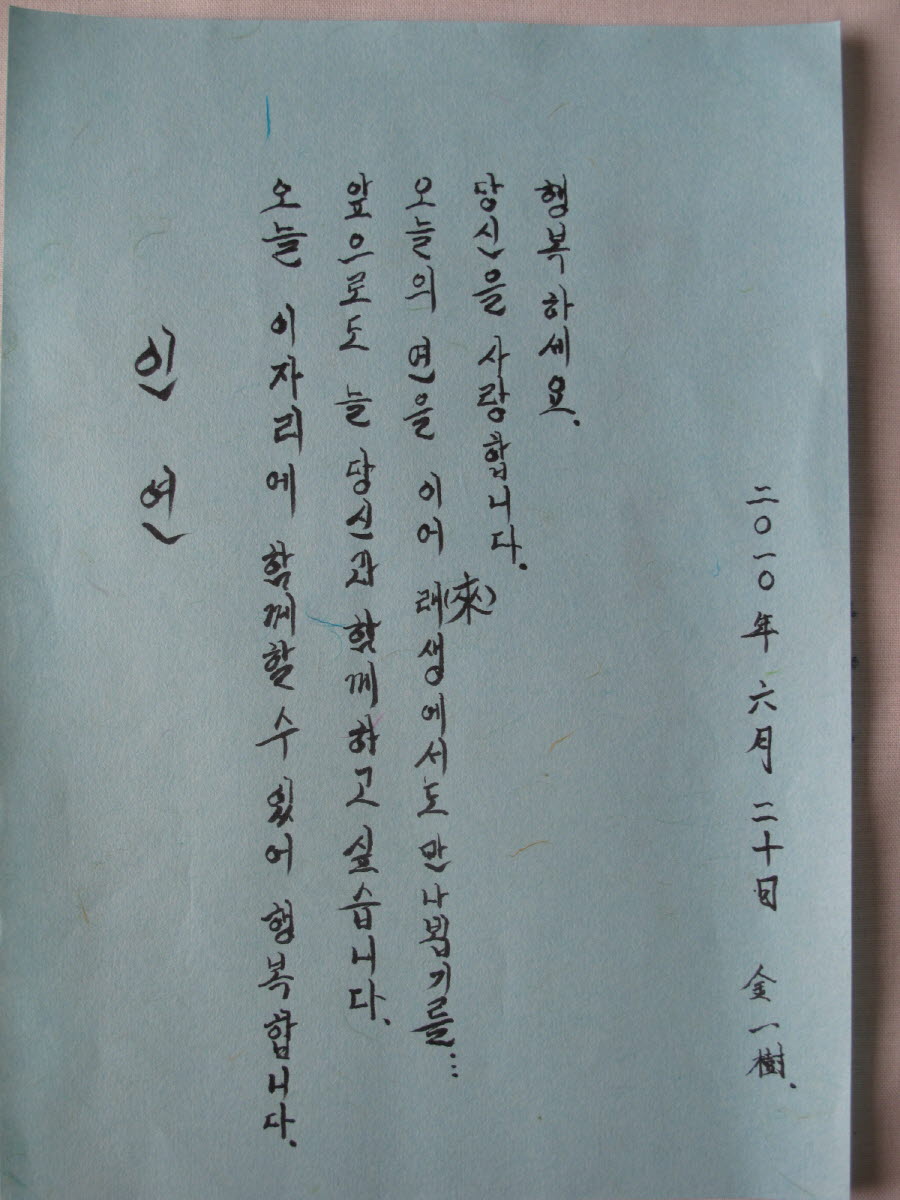 인연
오늘 이자리에 함께할 수 있어 행복합니다.
앞으로도 늘 당신과 함께하고 싶습니다.
오늘의 연을 이어 래(來)생에서도 만나뵙기를...
당신을 사랑합니다.
행복하세요.
二〇一〇年 六月 二十日 金一樹.